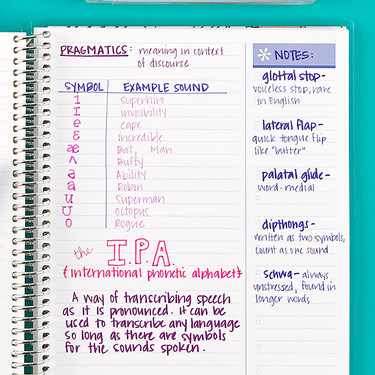 PRAGMATICS: meaning in context
of discourse
SYMBOL EXAMPLE SOUND
invisibility
e cape
ɛ incredible
æ Bat, Man
ʌ Buffy
Ability
a Robin
u Superman
ʊ octopus
o Rogue
the I.P.A
{international phonetic alphabet}
A way of transcribing speech
as it is pronounced. it can be
used to transcribe any language
so long as there are symbols
for the sounds spoken.
* NOTES:
glottal stop-
voiceless stop, rare
in English
lateral flap-
quick tongue flip
like "butter"
palatal glide-
word-medial
dipthongs-
written as two symbols,
count as one sound
schwa- always
unstressed, found in
longer words